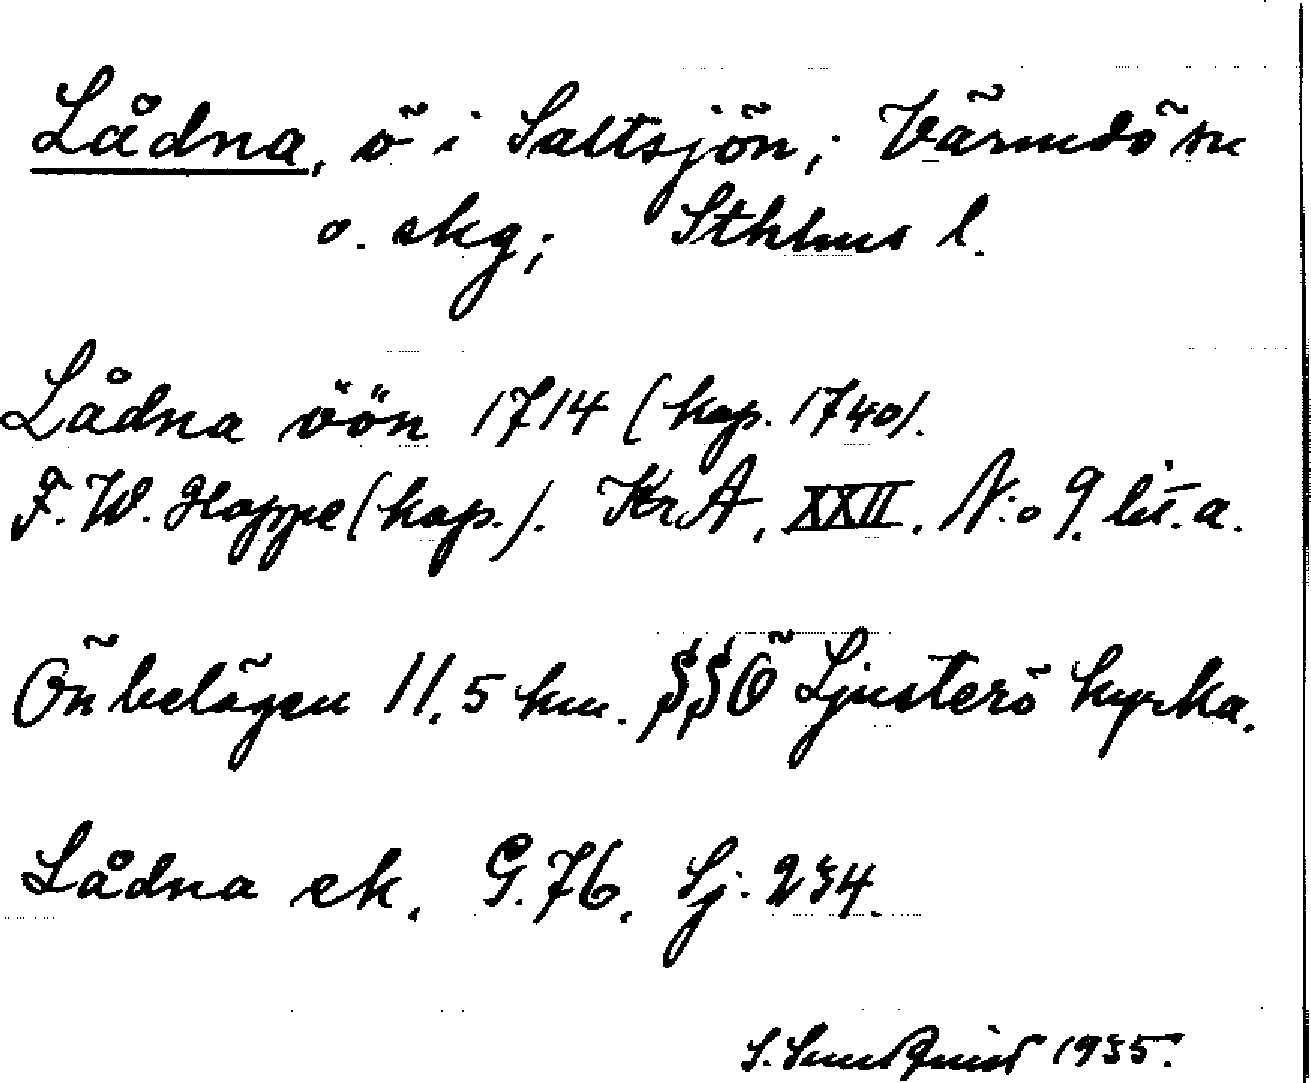 Lådna, ö i Saltsjön; Värmdö sn
o. skg; Sthlms l.
Lådna öön 1714 (kop. 1740).
F. W. Hoppe (kop.). KrA, XXII. N:o 9. lit. a.
Ön belägen 11,5 km. SSÖ Ljusterö kyrka.
Lådna ek. G. 76. Sj. 234.
S. Sundquist 1935.